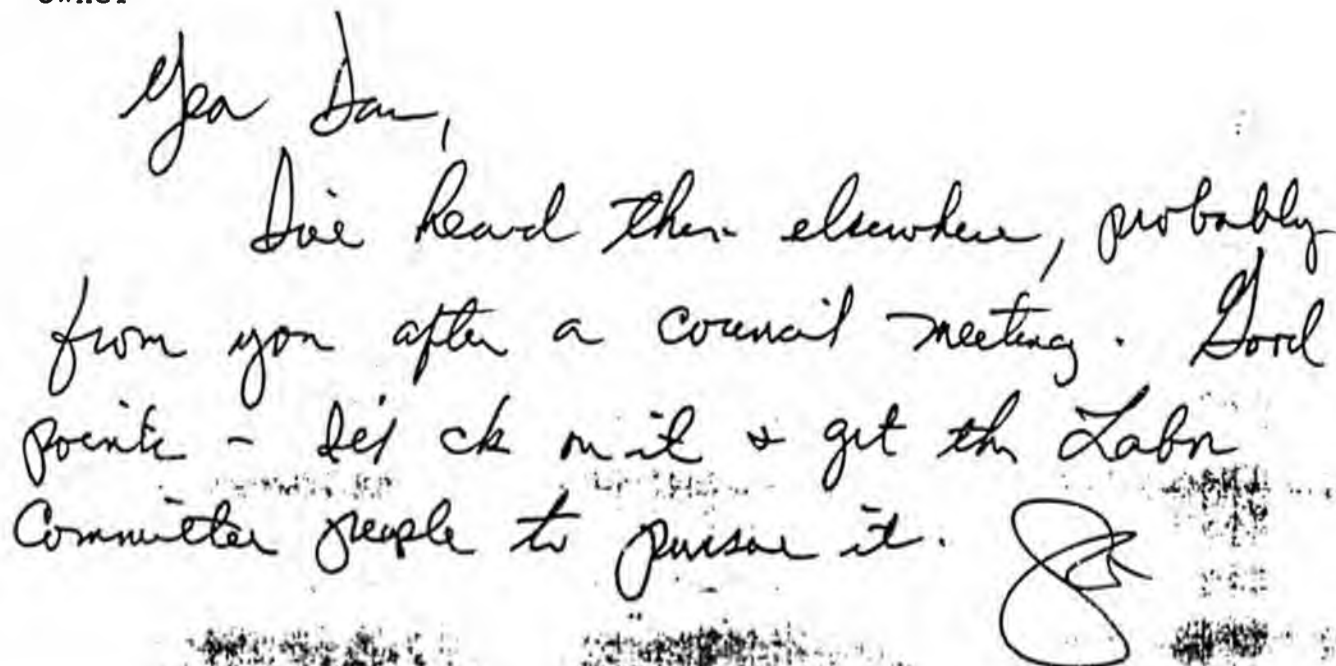 Yea Dan,
I've heard then elsewhere, probably
from you after a council meeting. Good
points - I'll ck on it & get the Labor
Committee people to pursue it.